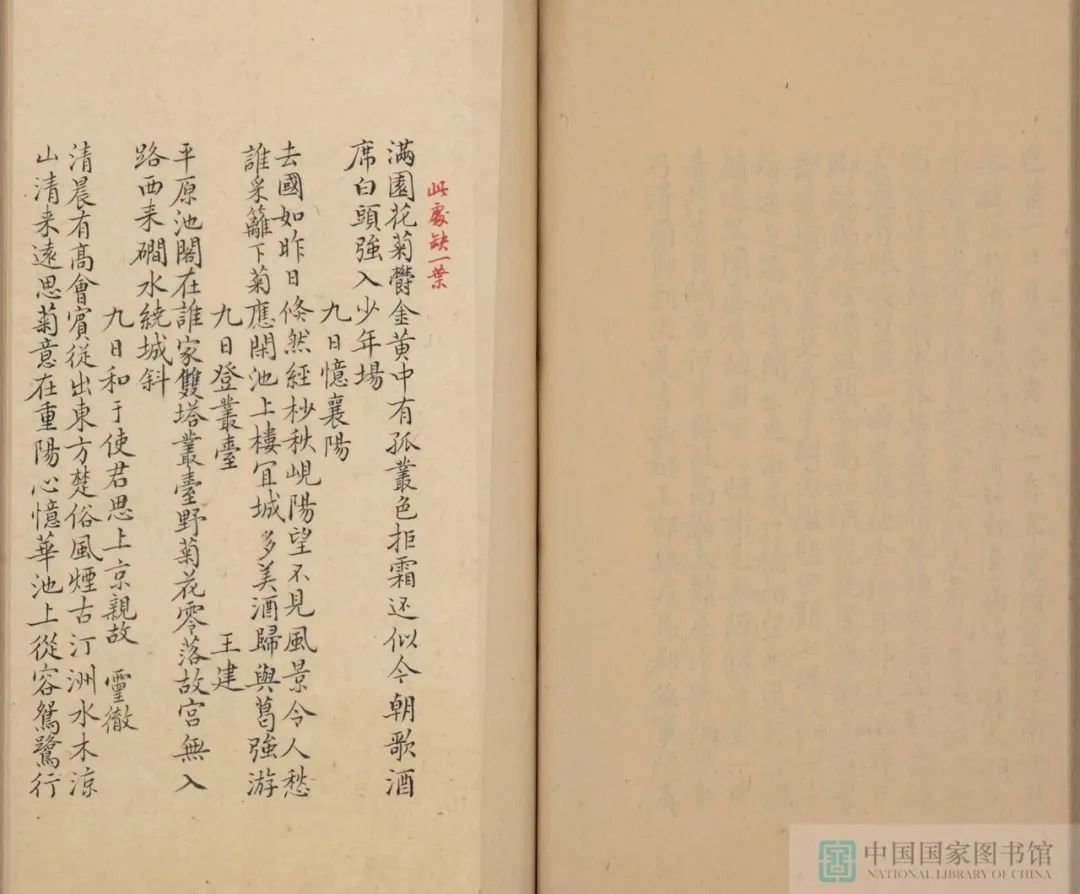 此處缺一葉
滿園花菊鬱金黄中有孤叢色拒霜还似今朝歌酒
席白頭強入少年場
九日憶襄陽
去國如昨日倏然經杪秋峴陽望不見風景令人愁
誰采籬下菊應閑池上樓宜城多美酒歸與葛強游
九日登叢臺 王建
平原池閣在誰家雙塔叢臺野菊花零落故宫無入
路西来磵水繞城斜
九日和于使君思上京親故 靈徹
清晨有髙會賓從出東方楚俗風煙古汀洲水木涼
山清来遠思菊意在重陽心憶華池上從容鴛鷺行
中国国家图书馆
NATIONAL LIBRARY OF CHINA